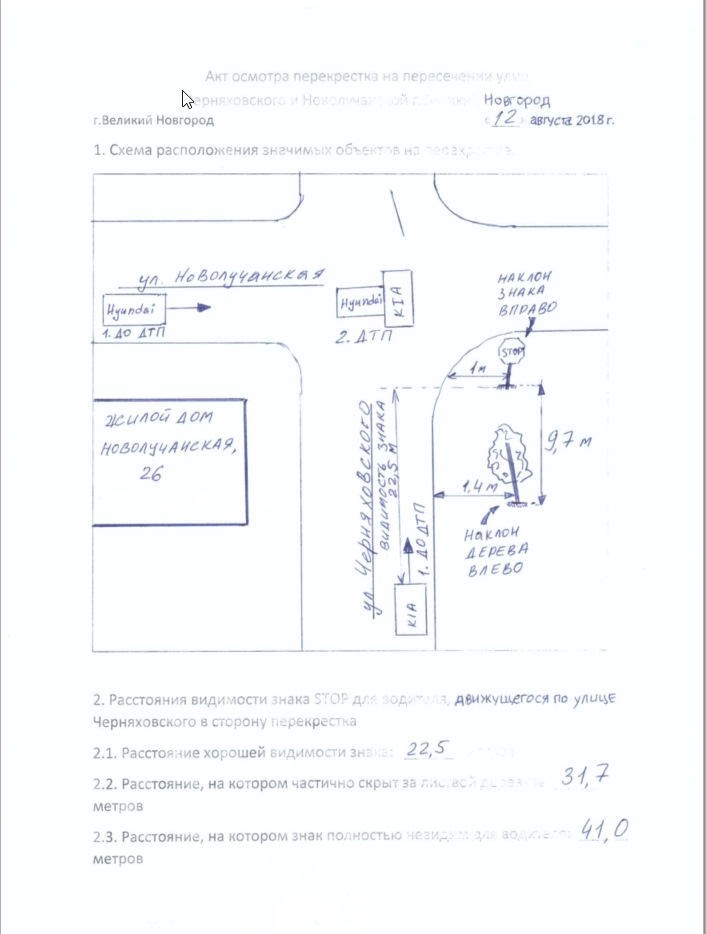 Акт осмотра перекрестка на пересечении улиц
Черняховского и Новолучанской г.Великий Новгород
г.Великий Новгород « 12 » августа 2018 г.
1. Схема расположения значимых объектов на перекрестке.
ул. Новолучанская
Hyundai
1. ДО ДТП
Hyundai
KIA
2. ДТП
НАКЛОН
ЗНАКА
ВПРАВО
STOP
1м
ЖИЛОЙ ДОМ
НОВОЛУЧАНСКАЯ,
26
ул. Черняховского
ВИДИМОСТЬ ЗНАКА
22,5 м
9,7 м
1,4 м
1. ДО ДТП
KIA
НАКЛОН
ДЕРЕВА
ВЛЕВО
2. Расстояния видимости знака STOP для водителя, движущегося по улице
Черняховского в сторону перекрестка
2.1. Расстояние хорошей видимости знака: 22,5
2.2. Расстояние, на котором частично скрыт за листвой 31,7
метров
2.3. Расстояние, на котором знак полностью невидим для водителя: 41,0
метров